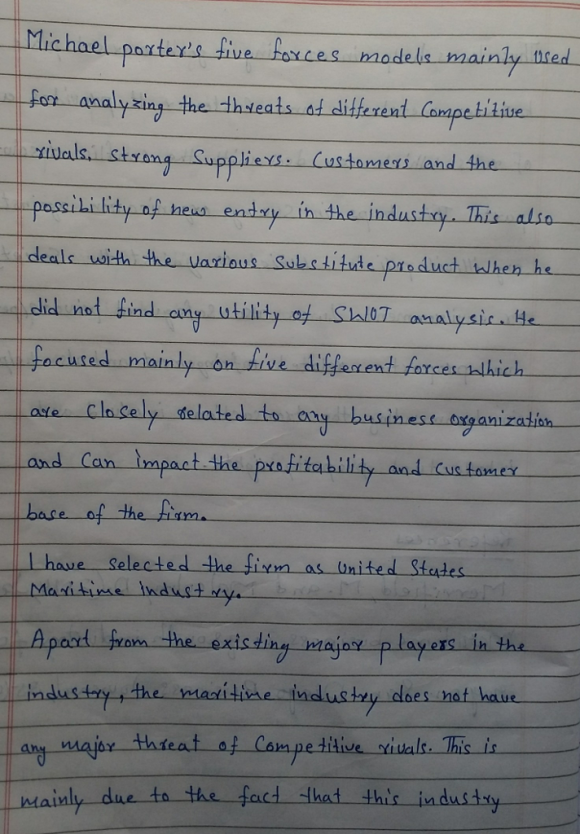 Michael porter's five forces models mainly used
for analyzing the threats of different Competitive
rivals, strong Suppliers. Customers and the
possibility of new entry in the industry. This also
deals with the various substitute product when he
did not find any utility of SWOT analysis. He
focused mainly on five different forces which
are closely related to any business organization
and can impact the profitability and customer
base of the firm.
I have selected the firm as United States
Maritime Industry.
Apart from the existing major players in the
industry, the maritime industry does not have
any major threat of Competitive rivals. This is
mainly due to the fact that this industry